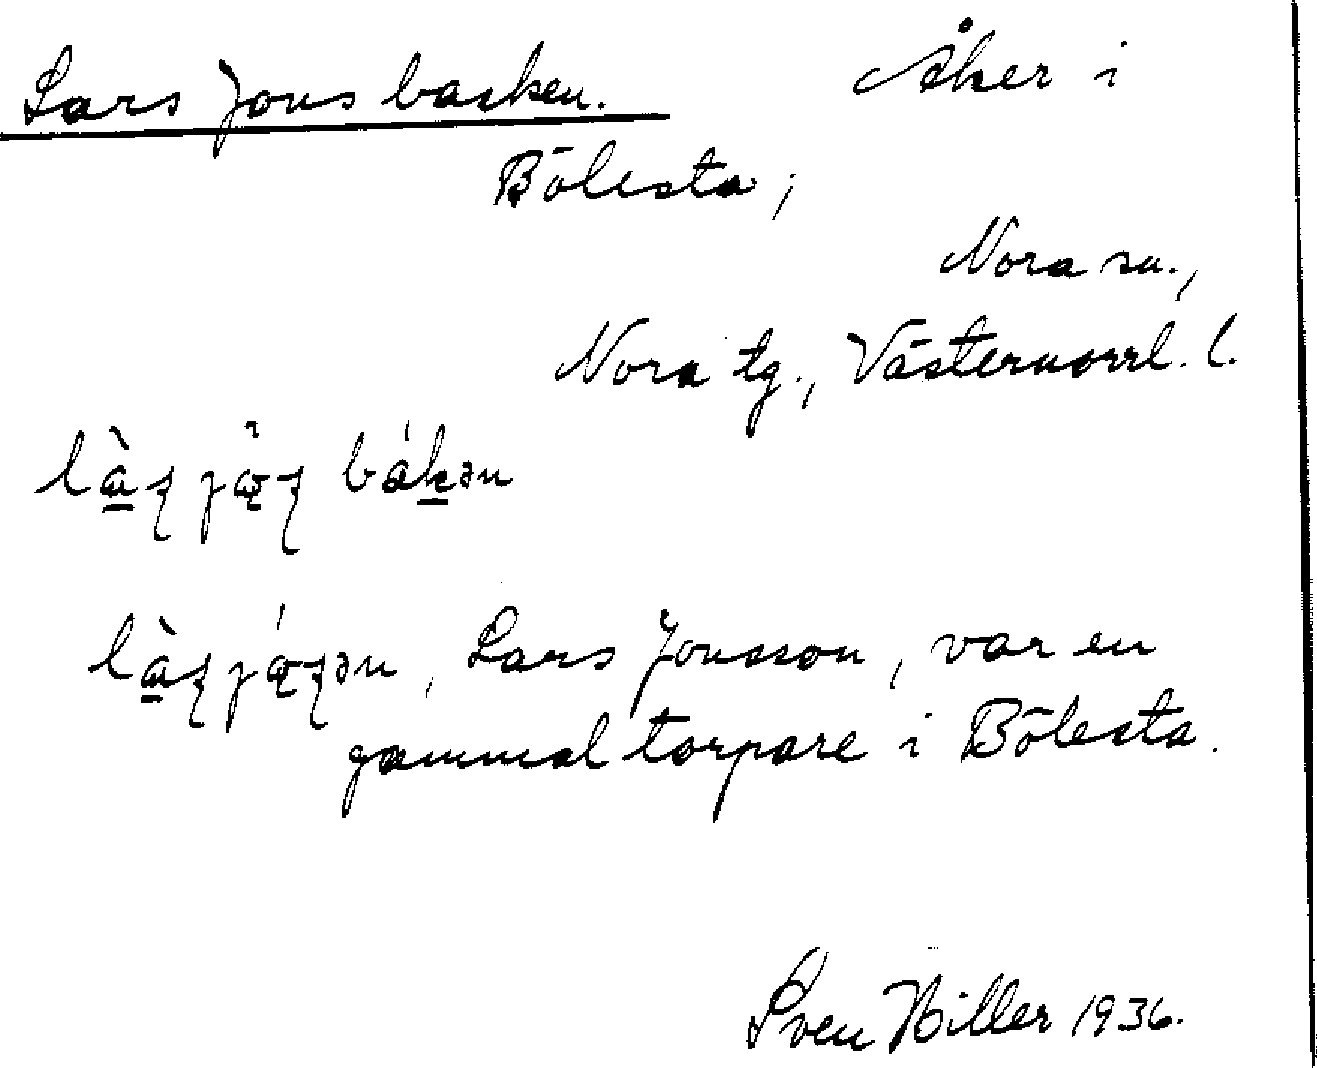 Lars Jons backen. Åker i
Bölesta;
Nora sn.,
Nora tg., Västernorrl. l.
Lars Jonsson, var en
gammal torpare i Bölesta.
Sven Hiller 1936.